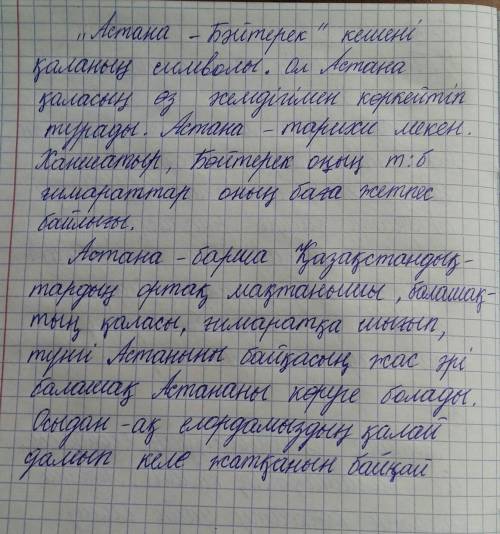 „Астана – Бәйтерек" кешені
қаланың символы. Ол Астана
қаласың өз жемдігімен көркейтіп
турады. Астана – тарихи мекен.
Ханшатыр, Бәйтерек оңың т:б
ғимараттар оның баға жетпес
байлығы.
Астана – барша Қазақстандық-
тардың ортақ мақтанышы, болашақ-
тың қаласы, ғимаратқа шығып,
түнгі Астанының байқасың жас әрі
болашақ Астананы көруге болады.
Осыдан-ақ елордамыздың қалай
дамып келе жатқанын байқай